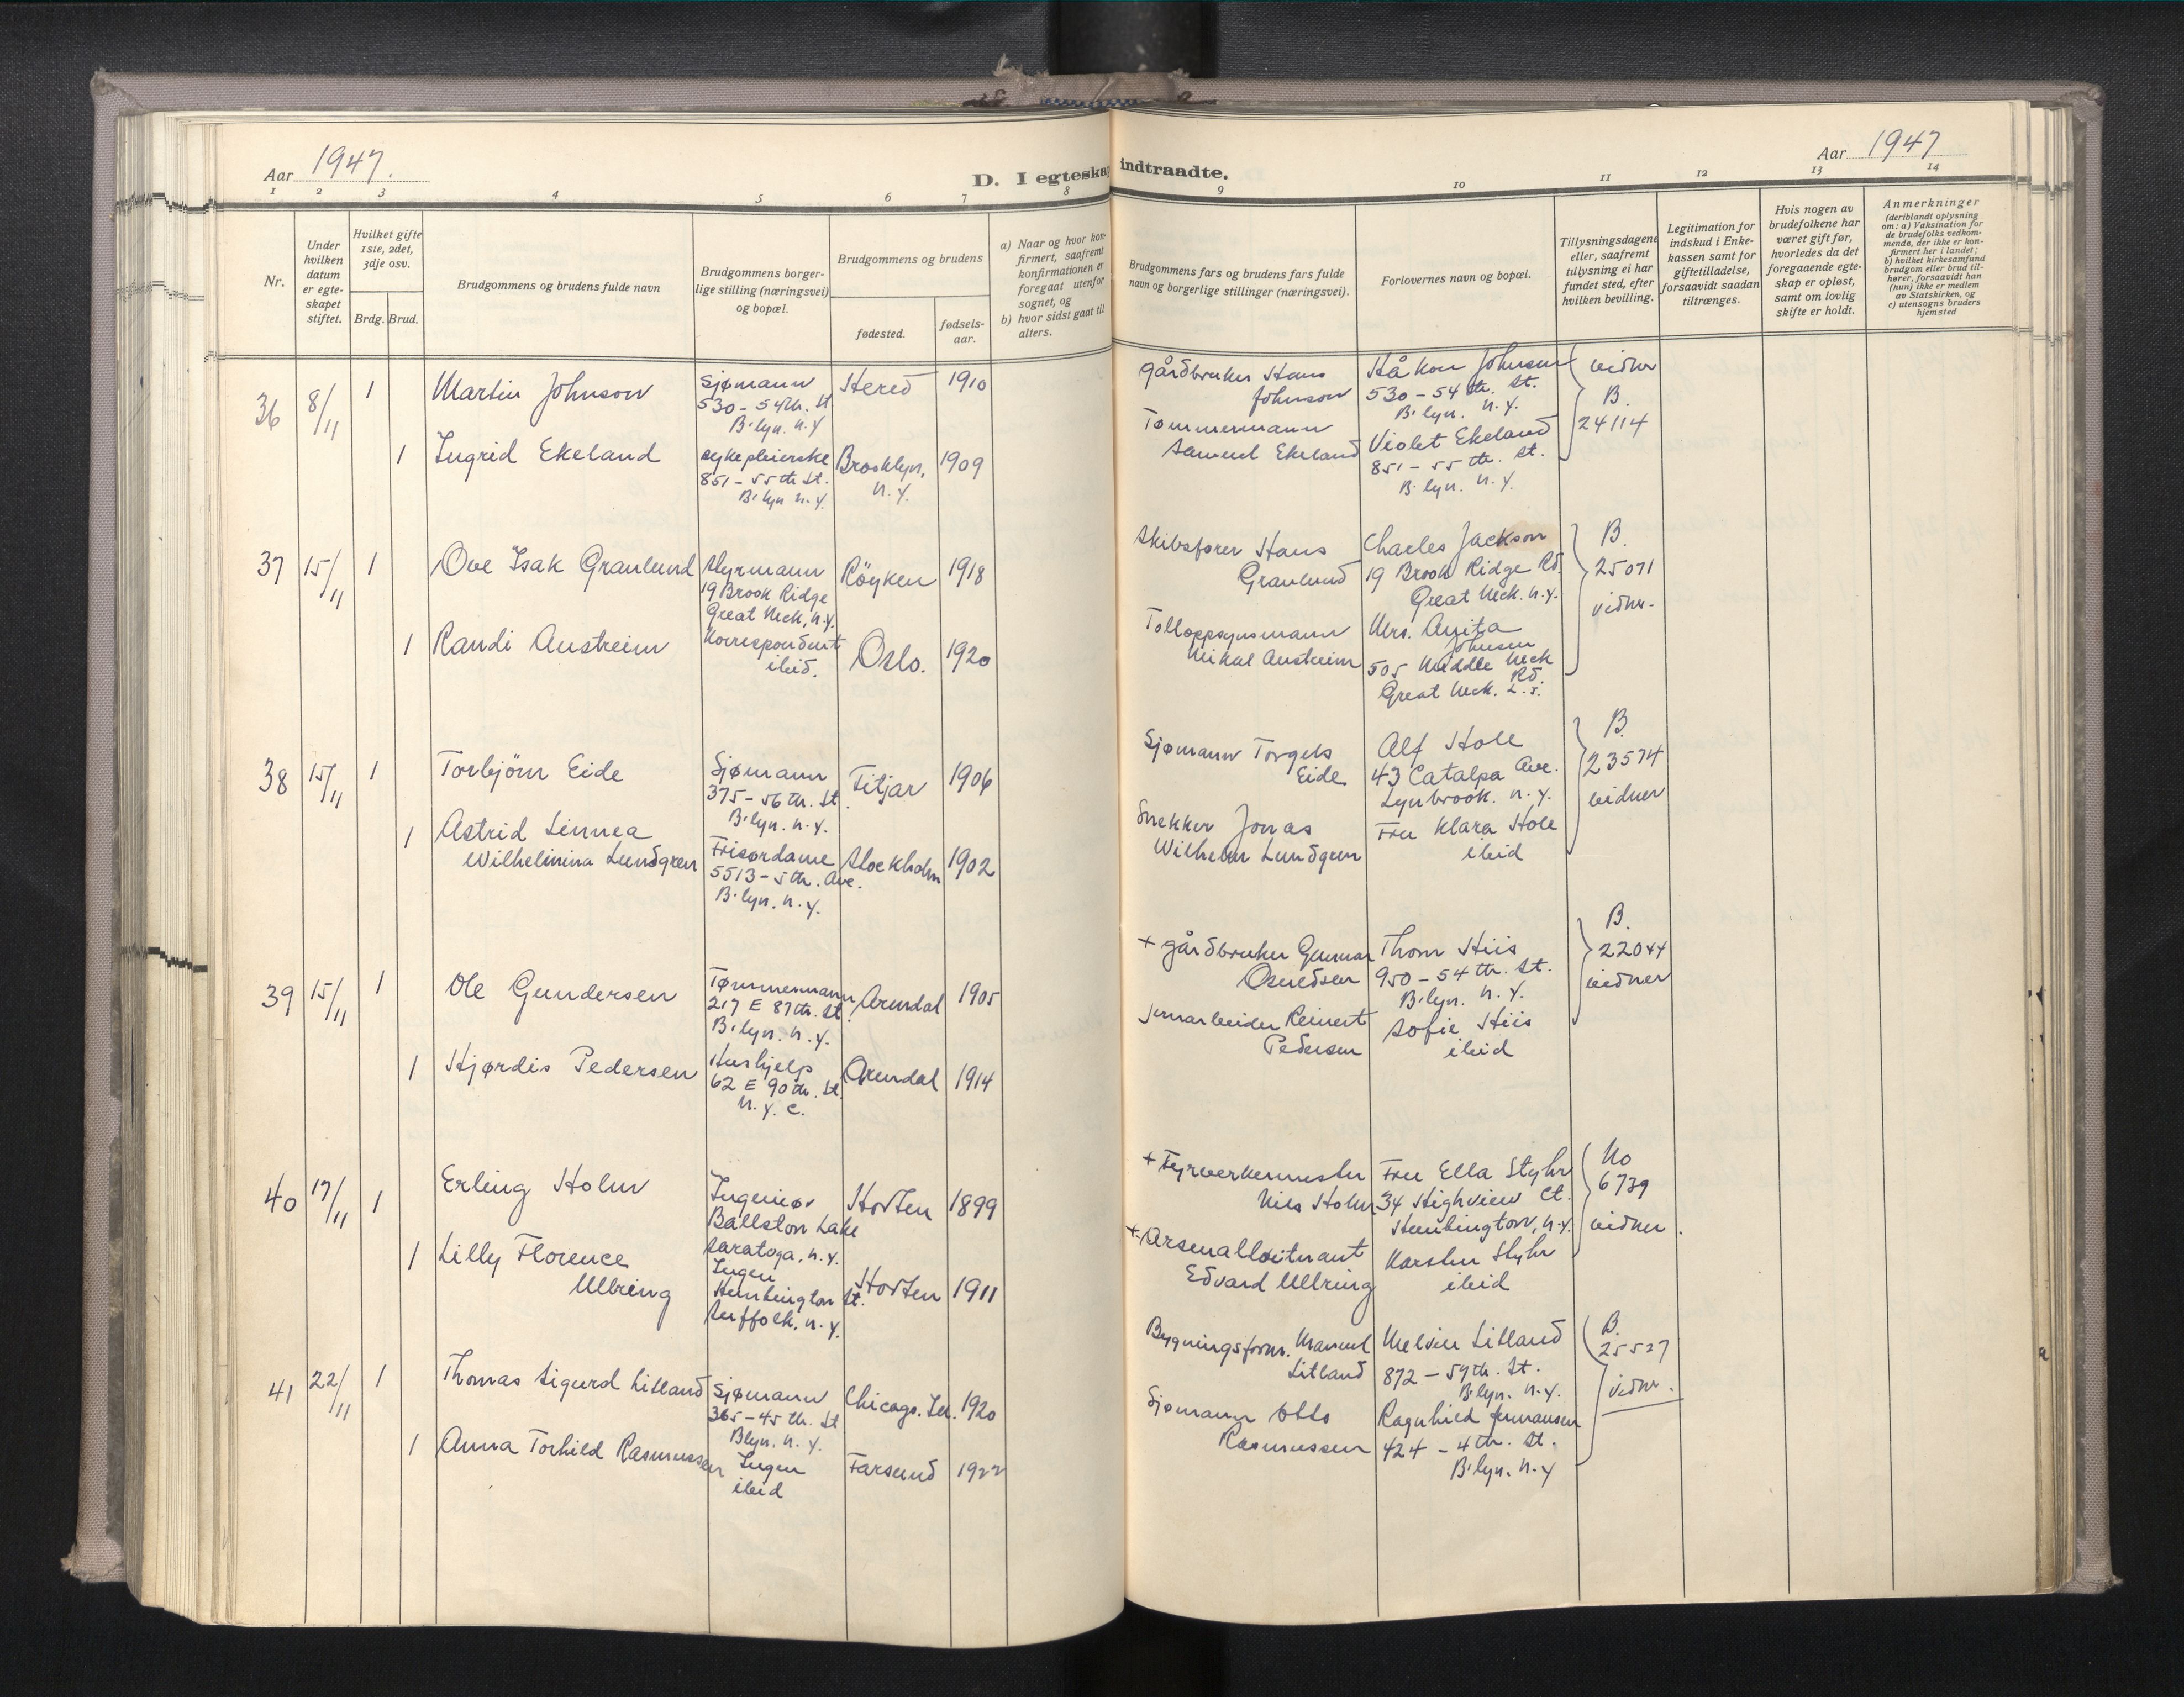 Aar 1947.
D. I egteskap indtraadte.
Aar 1947
1 2 3 4 5 6 7 8 9 10 11 12 13 14
Nr.
Under
hvilken
datum
er egte-
skapet
stiftet.
Hvilket gifte
1ste, 2det,
3dje osv.
Brdg. Brud.
Brudgommens og brudens fulde navn
Brudgommens borger-
lige stilling (næringsvei)
og bopæl.
Brudgommens og brudens
fødested.
fødsels-
aar.
a) Naar og hvor kon-
firmert, saafremt
konfirmationen er
foregaat utenfor
sognet, og
b) hvor sidst gaat til
alters.
Brudgommens fars og brudens fars fulde
navn og borgerlige stillinger (næringsvei).
Forlovernes navn og bopæl.
Tillysningsdagene
eller, saafremt
tillysning ei har
fundet sted, efter
hvilken bevilling.
Legitimation for
indskud i Enke-
kassen samt for
giftetilladelse,
forsaavidt saadan
tiltrænges.
Hvis nogen av
brudefolkene har
været gift før,
hvorledes da det
foregaaende egte-
skap er opløst,
samt om lovlig
skifte er holdt.
Anmerkninger
(deriblandt oplysning
om: a) Vaksination for
de brudefolks vedkom-
mende, der ikke er kon-
firmert her i landet;
b) hvilket kirkesamfund
brudgom eller brud til-
hører, forsaavidt han
(hun) ikke er medlem
av Statskirken, og
c) utensogns bruders
hjemsted
36 8/11 1
Martin Johnson
Sjømann
530 - 54th. St.
B'lyn. N.Y
Hered
1910
gårdbruker Hans
Johnson
Håkon Johnsen
530 - 54 th. St.
B'lyn. N.Y.
vidner
B.
24114
1
Ingrid Ekeland
sykepleierske
851 - 55th St.
B'lyn N.Y.
Brooklyn,
N.Y.
1909
Tømmermann
Samuel Ekeland
Violet Ekeland
851 - 55 th. St.
B'lyn. N.Y.
37 15/11 1
Ove Isak Granlund
Styrmann
19 Brook Ridge
Great Neck, N.Y.
Röyken
1918
Skibsfører Hans
Granlund
Charles Jackson
19 Brook Ridge Rd.
Great Neck. N.Y.
B.
25071
vidner.
1
Randi Austreim
Korrespondent
ibid.
Oslo.
1920
Tolloppsynsmann
Mikal Austreim
Mrs. Anita
Johnsen
505 Middle Neck
Rd.
Great Neck. L.I.
38 15/11 1
Torbjörn Eide
Sjømann
375 - 56 th. St.
B'lyn. N.Y.
Fitjar
1906
Sjømann Torgels
Eide
Alf Hole
43 Catalpa Ave.
Lynbrook. N.Y.
B.
23574
vidner
1
Astrid Linnea
Wilhelmina Lundgren
Frisørdame
5513 - 5th. Ave.
B'lyn. N.Y.
Stockholm
1902
Snekker Jonas
Wilhelm Lundgren
Fru Klara Hole
ibid
39 15/11 1
Ole Gundersen
Tømmermann
217 E 87th. St.
B'lyn. N.Y.
Arendal
1905
+ gårdbruker Gunnar
Osuldsen
Thom Hiis
950 - 54 th. St.
B'lyn. N.Y.
B.
22044
vidner
1
Hjørdis Pedersen
Hushjelp
62 E 90th. St.
N.Y.C.
Arendal
1914
Jernarbeider Reinert
Pedersen
Sofie Hiis
ibid
40 17/11 1
Erling Holm
Ingeniør
Ballston Lake
Saratoga, N.Y.
Horten
1899
+ Fyrverkermester
Nils Holm
Fru Ella Styhr
34 Highview Ct.
Huntington, N.Y.
No
6739
vidner.
1
Lilly Florence
Ullring
Ingen
Huntington St.
Suffolk, N.Y.
Horten
1911
+ Arsenalløitnant
Edvard Ullring
Karsten Styhr
ibid
41 22/11 1
Thomas Sigurd Litland
Sjømann
365 - 45 th. St
Blyn. N.Y.
Chicago. Ill.
1920
Bygningsform. Manuel
Litland
Melvin Litland
872 - 57th. St.
B'lyn. N.Y.
B.
25527
vidner.
1
Anna Torhild Rasmussen
Ingen
ibid
Farsund
1922
Sjømann Otto
Rasmussen
Ragnhild Hermansen
424 - 4 th. St.
B'lyn. N.Y